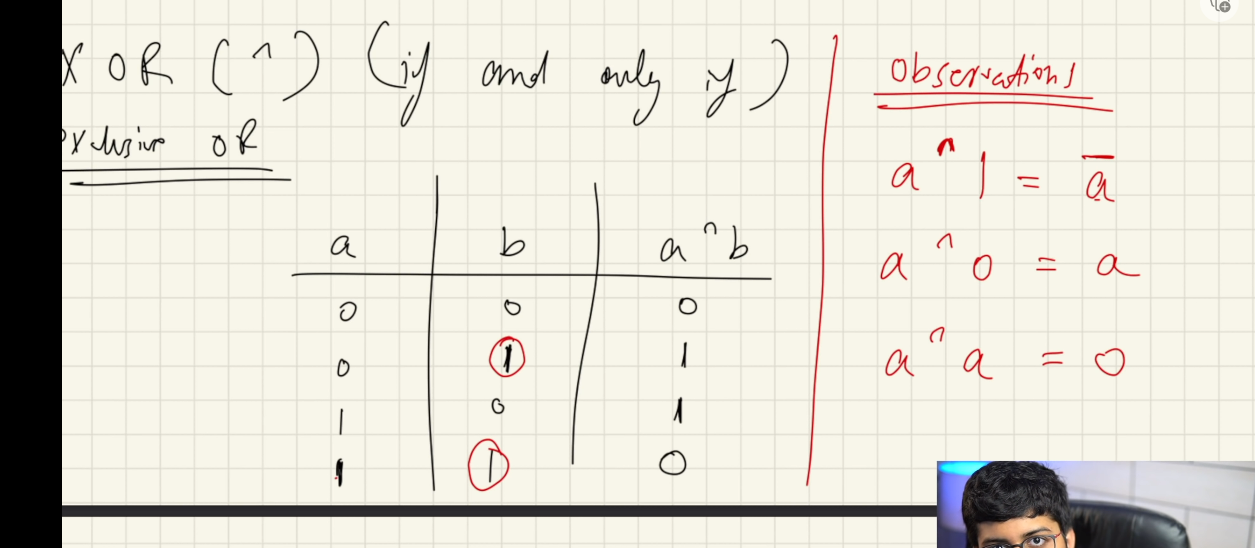 XOR (^) (if and only if)
exclusive OR
a b a^b
0 0 0
0 1 1
1 0 1
1 1 0
Observations
a ^ 1 = a̅
a ^ 0 = a
a ^ a = 0